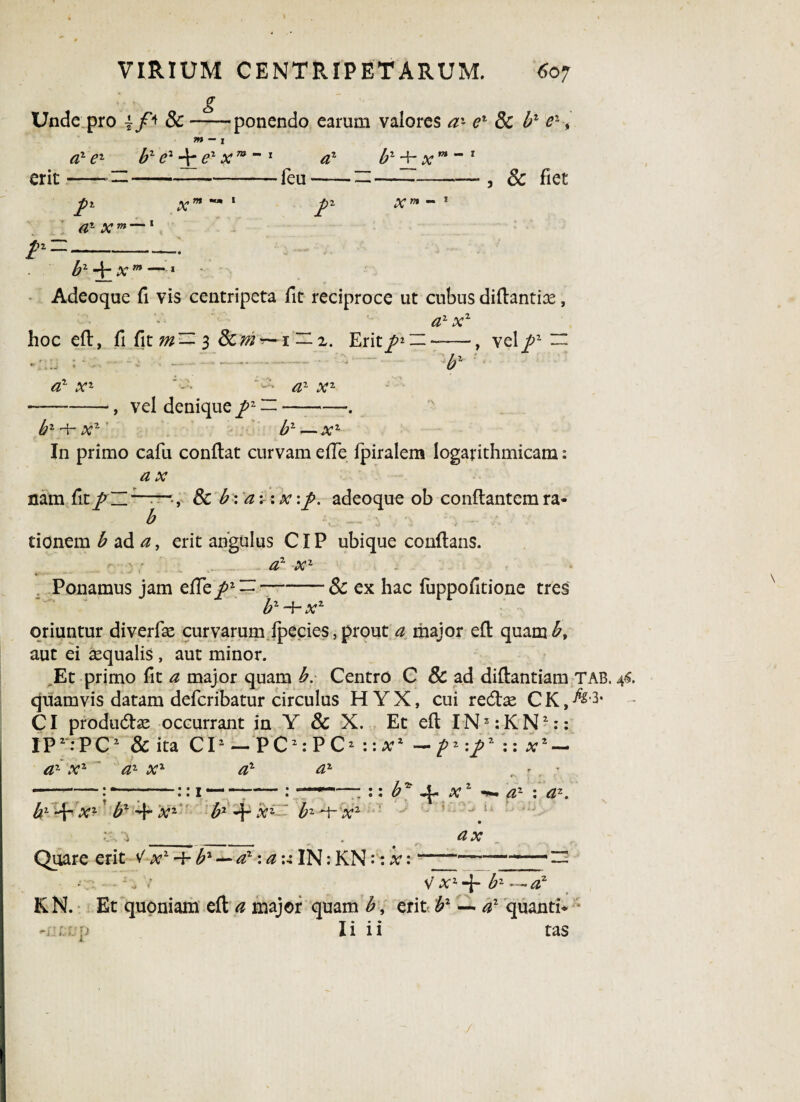 VIRIUM CENTRIPETARUM. 607
Unde pro ½ f⁴ & g/(m − 1) ponendo earum valores a² e² & b² e²,
erit a² e²/p² = (b² e² ± e² x^(m − 1))/x^(m − 1) ſeu a²/p² = (b² ± x^(m − 1))/x^(m − 1), & fiet
p² = a² x^(m − 1)/(b² ± x^(m − 1)).
Adeoque ſi vis centripeta ſit reciproce ut cubus diſtantiæ,
hoc eſt, ſi ſit m = 3 & m − 1 = 2. Erit p² = a² x²/b², vel p² =
a² x²/(b² + x²), vel denique p² = a² x²/(b² − x²).
In primo caſu conſtat curvam eſſe ſpiralem logarithmicam:
nam ſit p = a x/b, & b : a :: x : p. adeoque ob conſtantem ra-
tionem b ad a, erit angulus CIP ubique conſtans.
Ponamus jam eſſe p² = a² x²/(b² + x²) & ex hac ſuppoſitione tres
oriuntur diverſæ curvarum ſpecies, prout a major eſt quam b,
aut ei æqualis, aut minor.
Et primo ſit a major quam b. Centro C & ad diſtantiam TAB. 46.
quamvis datam deſcribatur circulus HYX, cui rectæ CK, fig. 3.
CI productæ occurrant in Y & X. Et eſt IN² : KN² ::
IP² : PC² & ita CI² − PC² : PC² :: x² − p² : p² :: x² −
a² x²/(b² + x²) : a² x²/(b² + x²) :: 1 − a²/(b² + x²) : a²/(b² + x²) :: b² + x² − a² : a².
Quare erit √x² + b² − a² : a :: IN : KN :: x : a x/√x² + b² − a² =
KN. Et quoniam eſt a major quam b, erit b² − a² quanti-
Ii ii tas